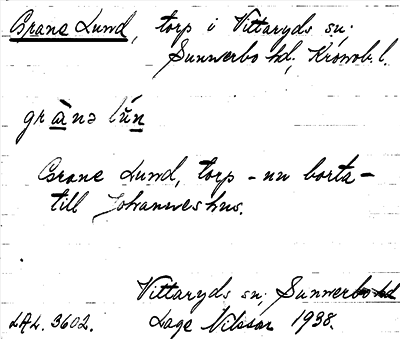 Grane Lund, torp i Vittaryds sn;
Sunnerbo hd; Kronob. l.
grànə lún
Grane Lund, torp - nu borta -
till Johanneshus.
Vittaryds sn; Sunnerbo hd
LAL. 3602. Lage Nilsson 1938.